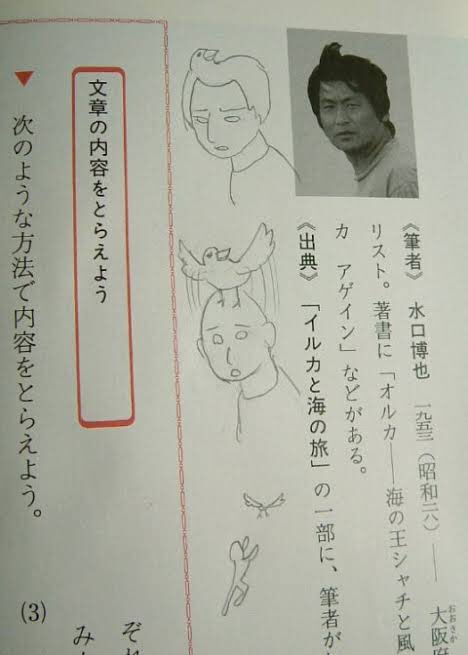 《筆者》 水口博也 一九五三(昭和二八)―― 大阪府
おおさか
リスト。著書に「オルカ――海の王シャチと風
カ アゲイン」などがある。
《出典》 「イルカと海の旅」の一部に、筆者が
文章の内容をとらえよう
▼ 次のような方法で内容をとらえよう。
(3)
ぞれ
み